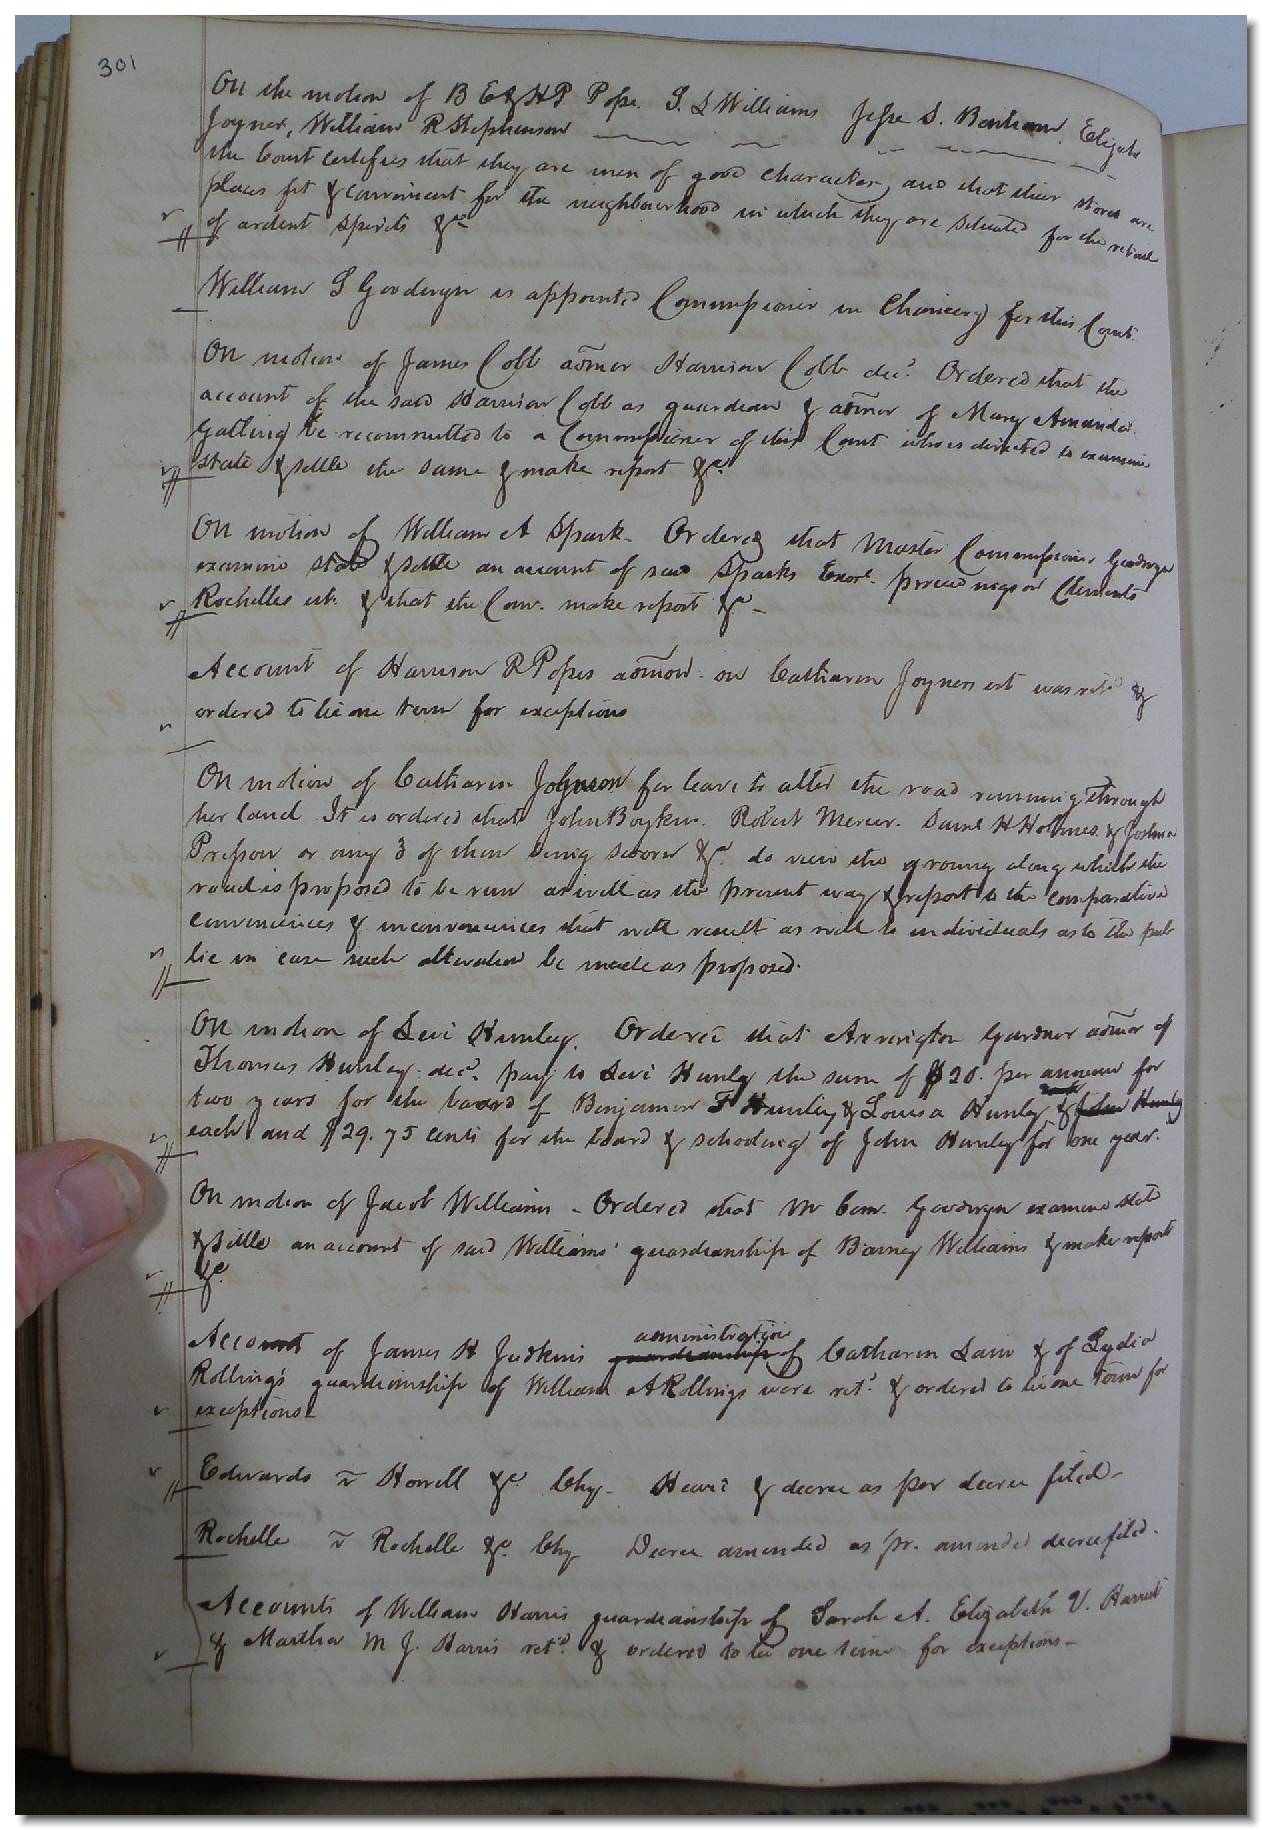 301
On the motion of B E & H P Pope. S. L Williams Jesse S. Barham. Elijah
Joyner, William R Stephenson
the Court certifies that they are men of good character, and that their stores are
places fit & convenient for the neighbourhood in which they are situated for the retail
of ardent spirits &c
William S Goodwyn is appointed Commissioner in Chancery for this Court
On motion of James Cobb admor Harrison Cobb decd. Ordered that the
account of the said Harrison Cobb as guardian & admor of Mary Amanda
Gatling be recommitted to a Commissioner of this Court who is directed to examine
state & settle the same & make report &c.
On motion of William A Spark - Ordered that Master Commissioner Goodwyn
examine state & settle an account of said Sparks Exorl. proceedings on Clements
Rochelles est. & that the Com. make report &c -
Account of Harrison R Popes admon. on Catharin Joyners est was retd &
ordered to lie one term for exceptions
On motion of Catharin Johnson for leave to alter the road running through
her land It is ordered that John Boykin. Robert Mercer. Saml H Holmes. & Joshua
Presson or any 3 of them being sworn &c. do view the ground along which the
road is proposed to be run as well as the present way & report to the comparative
conveniences & inconveniences that will result as well to individuals as to the pub
lic in case such alteration be made as proposed.
On motion of Levi Hunley. Ordered that Arrington Gardner admor of
Thomas Hunley decd. pay to Levi Hunly the sum of $20. per annum for
two years for the board of Benjamin F Hunley & Louisa Hunley & John Hunly
each and $29.75 cents for the board & schooling of John Hunley for one year.
On motion of Jacob Williams - Ordered that M Com. Goodwyn examine state
& settle an account of said Williams' guardianship of Barney Williams & make report
&c
Account of James H Judkins guardianship administration of Catharin Lain & of Lydia
Rollings guardianship of William A Rollings were retd. & ordered to lie one term for
exceptions
Edwards v Howell &c. Chy. Heard & decree as per decree filed -
Rochelle v Rochelle &c. Chy Decree amended as pr. amended decree filed.
Accounts of William Harris guardianship of Sarah A. Elizabeth V. Harris
& Martha M J. Harris retd. & ordered to lie one term for exceptions -